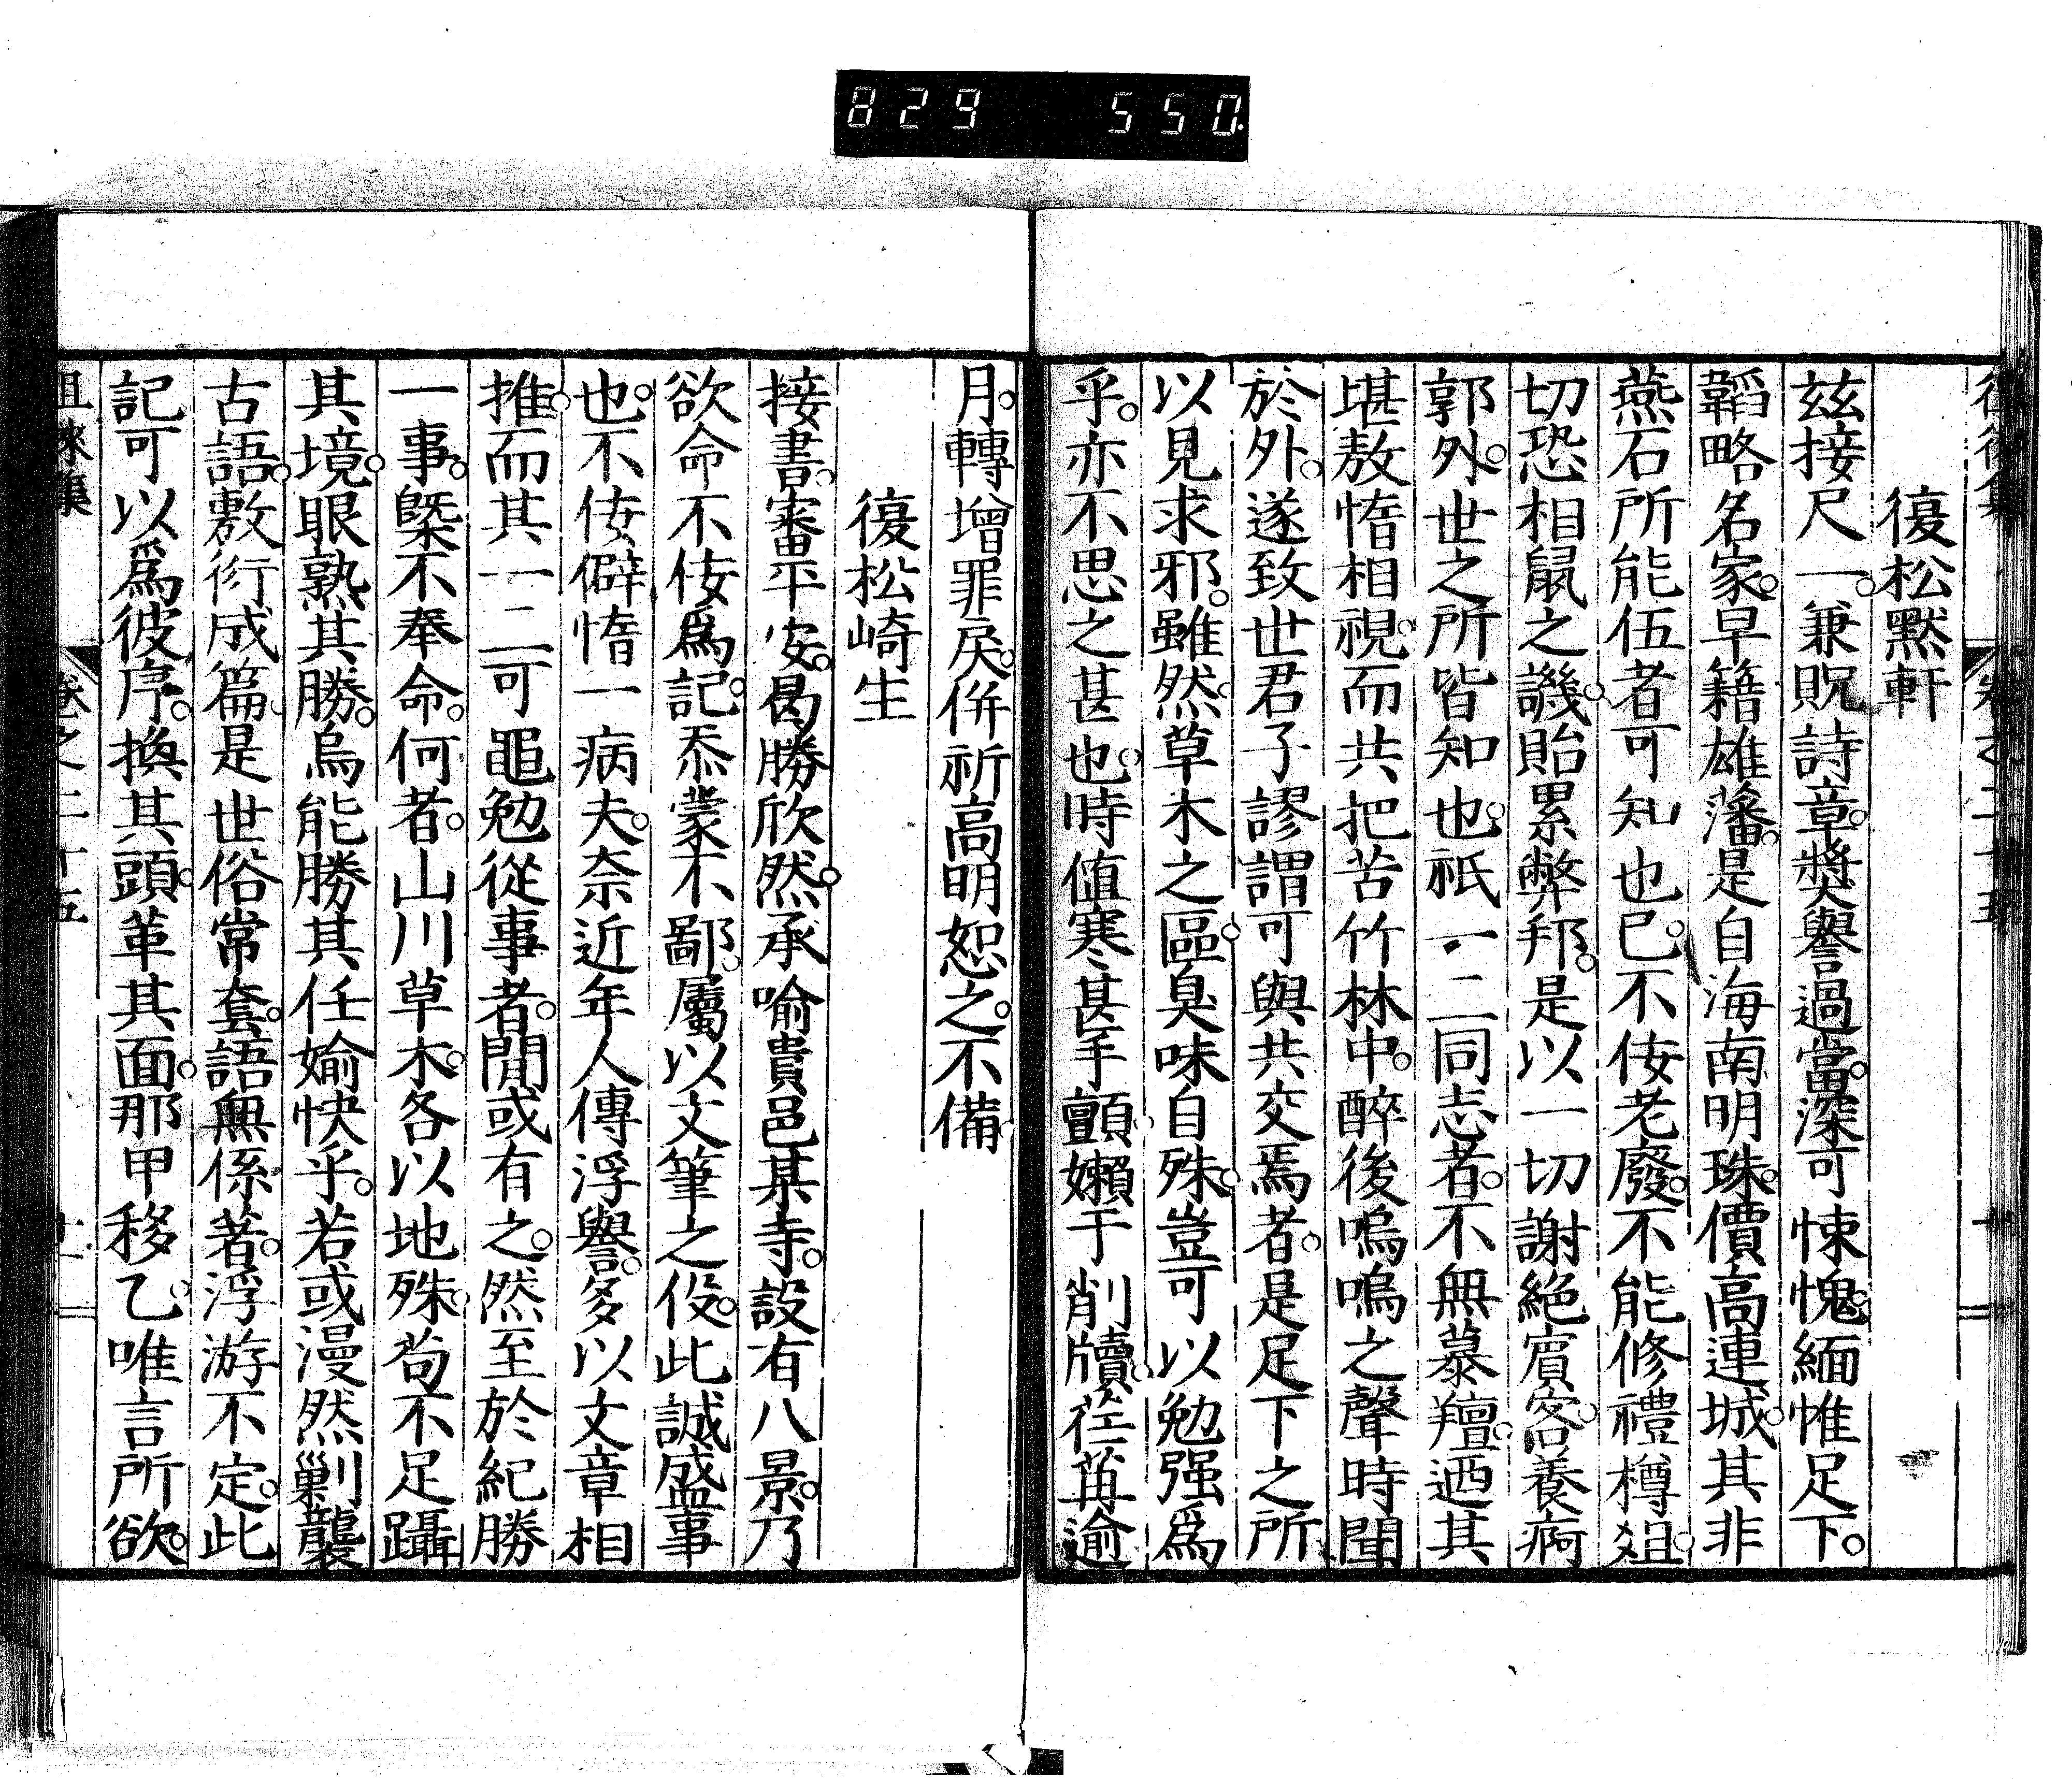 829 550
復松黙軒
玆接尺一。兼貺詩章。奬譽過當。深可悚愧。緬惟足下。
韜略名家。早籍雄藩。是自海南明珠。價高連城。其非
燕石所能伍者可知也已。不佞老廢。不能修禮樽俎。
切恐相鼠之譏。貽累弊邦。是以一切謝絕賓客。養痾
郭外。世之所皆知也。祇一二同志者。不無慕羶。迺其
堪敖惰相視。而共把苦竹林中。醉後嗚嗚之聲時聞
於外。遂致世君子謬謂可與共交焉者。是足下之所
以見求邪。雖然。草木之區。臭味自殊。豈可以勉强爲
乎。亦不思之甚也。時值寒甚。手顫。嬾于削牘。荏苒逾
月。轉增罪戾。併祈高明恕之。不備
復松崎生
接書。審平安。曷勝欣然。承喻貴邑某寺。設有八景。乃
欲命不佞爲記。忝蒙不鄙。屬以文筆之役。此誠盛事
也。不佞僻惰一病夫。奈近年人傳浮譽。多以文章相
推。而其一二可黽勉從事者。閒或有之。然至於紀勝
一事。槩不奉命。何者。山川草木。各以地殊。苟不足躡
其境。眼熟其勝。烏能勝其任媮快乎。若或漫然剿襲
古語。敷衍成篇。是世俗常套。語無係著。浮游不定。此
記可以爲彼序。換其頭。革其面。那甲移乙。唯言所欲。
徂徠集 卷之二十五 十一